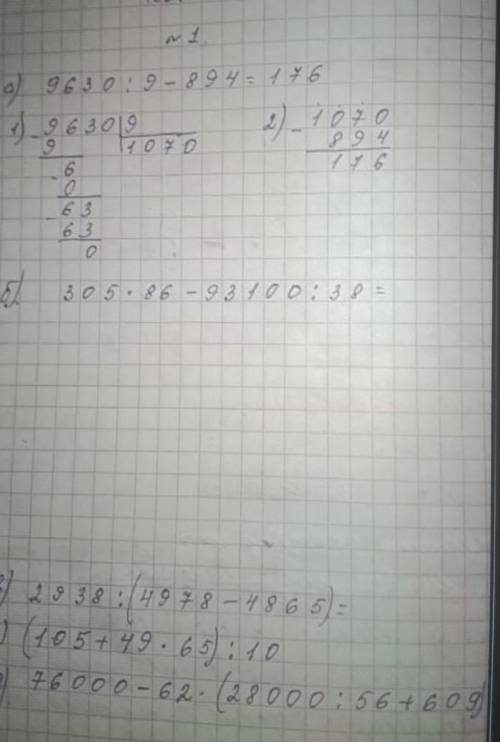 №1.
а) 9630 : 9 – 894 = 176
1) - 9630 | 9
9 1070
- 6
0
- 63
63
0
2) - 1070
894
176
б) 305 · 86 – 93100 : 38 =
) 2938 : (4978 – 4865) =
) (105 + 49 · 65) : 10
) 76000 – 62 · (28000 : 56 + 609)